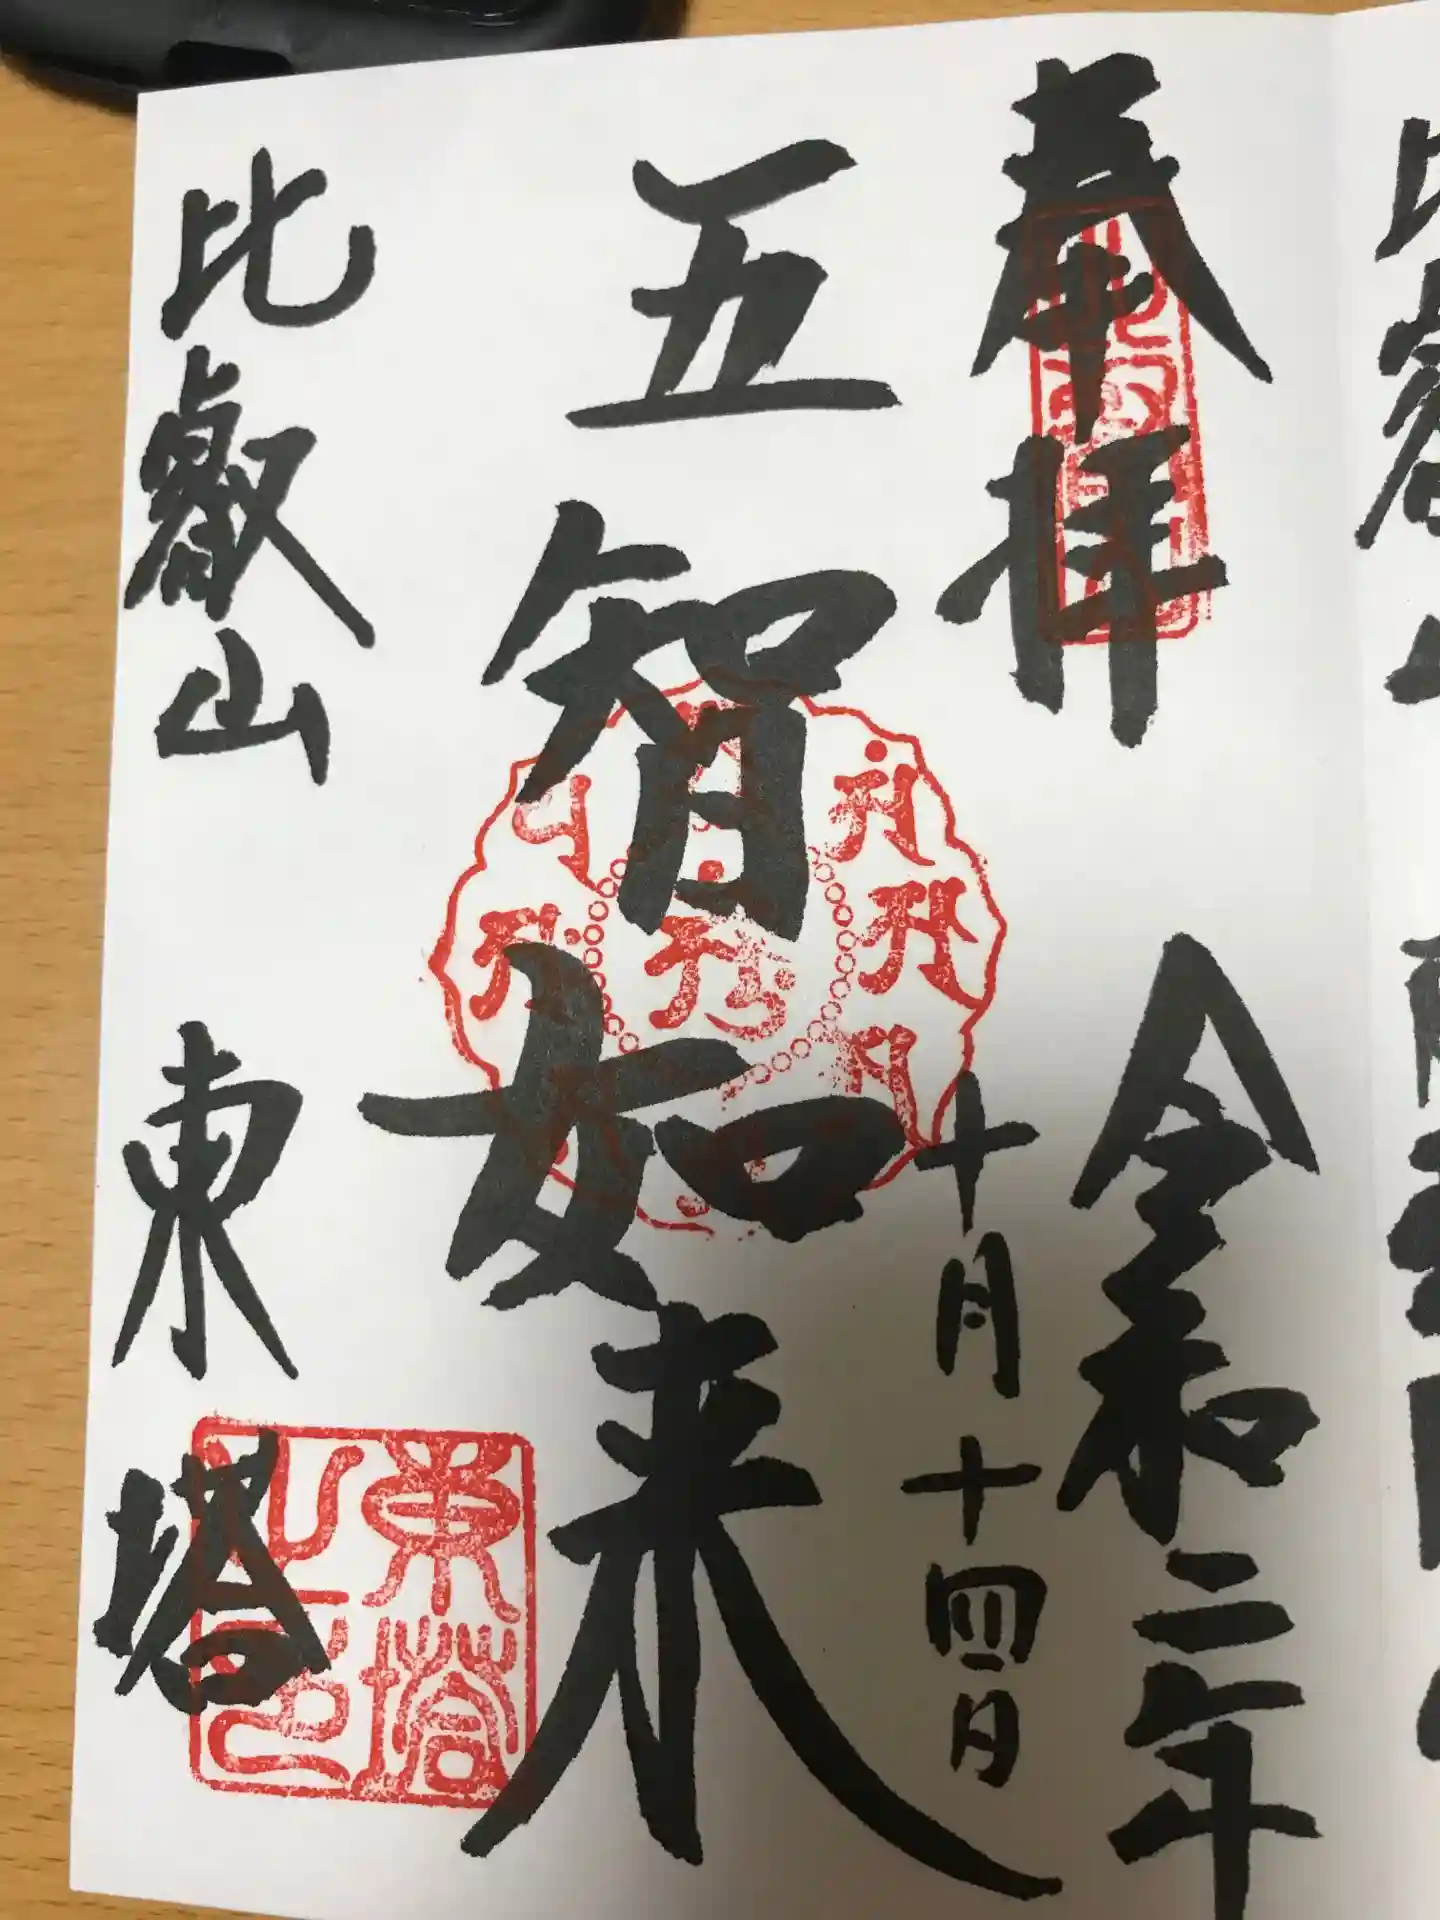 奉拝
令和二年
十月十四日
五智如来
比叡山 東塔
東塔之印
比叡山